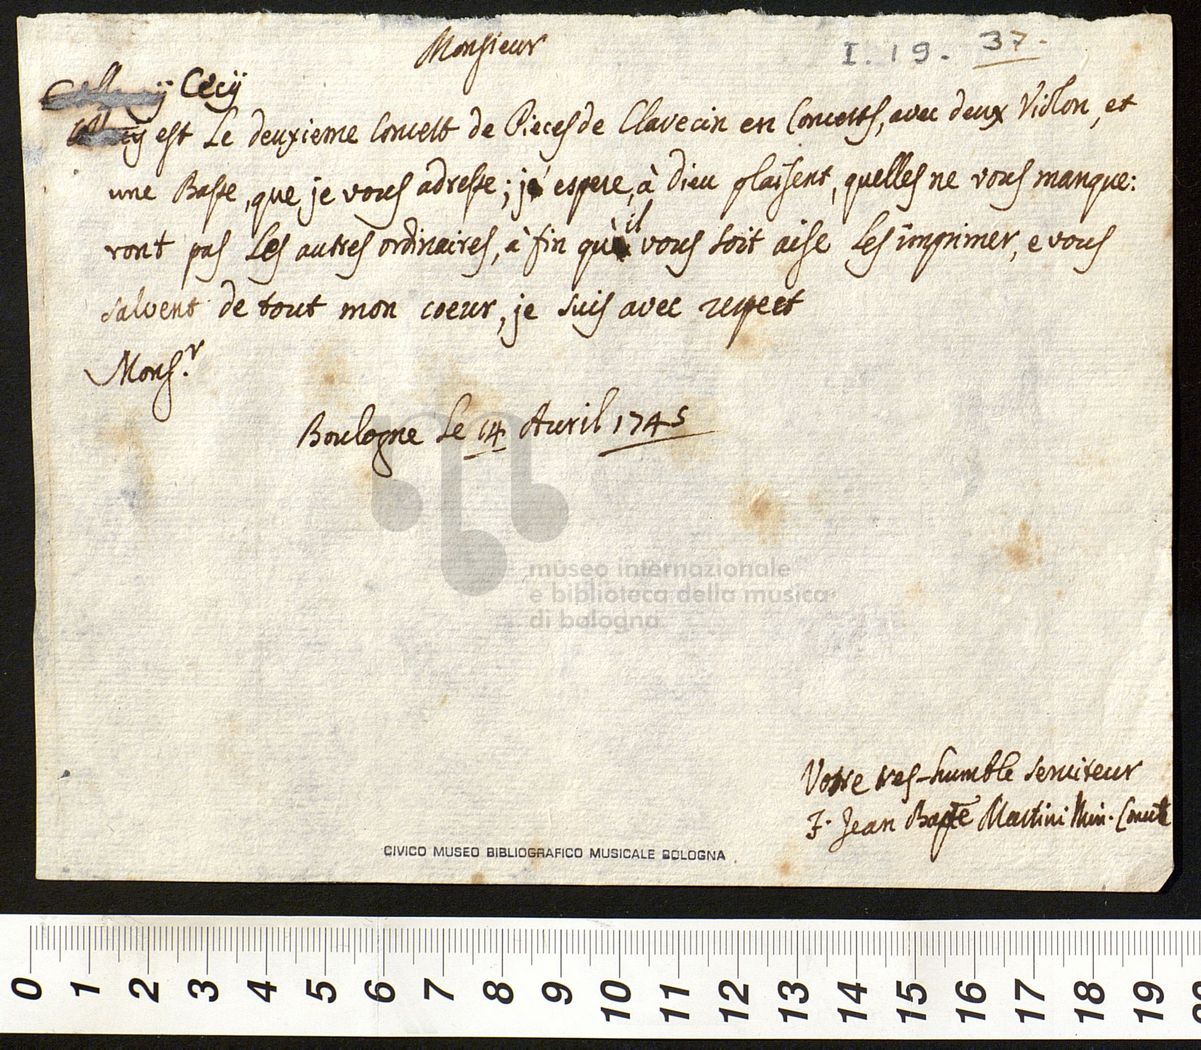 Monsieur
I. 19. 37.
Cecÿ
est Le deuxieme Concert de Pieces de Clavecin en Concerts, avec deux Violon, et
une Basse, que je vous adresse; je espere, à Dieu plaisent, quelles ne vous manque:
ront pas Les autres ordinaires, à fin qu' il vous soit aise Les imprimer, e vous
salvent de tout mon coeur, je suis avec respect
Mons.r
Boulogne Le 14 Avril 1745
museo internazionale
e biblioteca della musica
di bologna
Votre tres-humble serviteur
F. Jean Bapte Martini Min. Convte
CIVICO MUSEO BIBLIOGRAFICO MUSICALE BOLOGNA
0 1 2 3 4 5 6 7 8 9 10 11 12 13 14 15 16 17 18 19 20